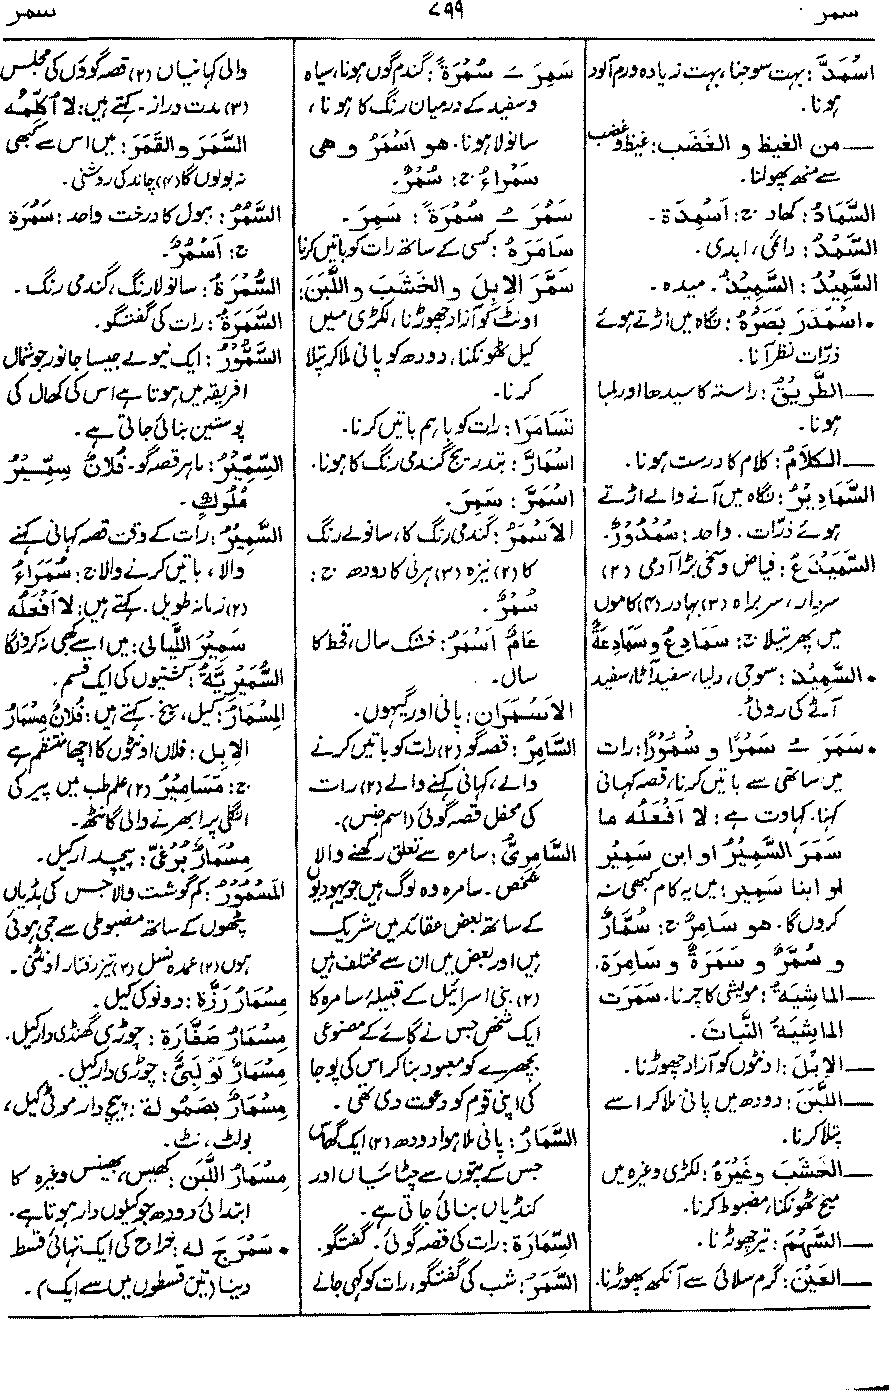 سمر
۷۹۹
سمر
اسْمَدَّ : بہت سوجنا، بہت زیادہ ورم آلود
ہونا۔
— من الغیظ و الغَضَب : غیظ و غضب
سے منھ پھولنا۔
السَّمَادُ : کھاد ج: اَسْمِدَة ۔
السَّمْدُ : دائمی، ابدی۔
السَّمِيْدُ : السَّمِيْدُ ۔ میدہ ۔
• اسْمَدَرَ بَصَرُهُ : نگاہ میں اڑتے ہوئے
ذرّات نظر آنا۔
— الطَّرِيْقُ : راستہ کا سیدھا اور لمبا
ہونا۔
— الکلامُ : کلام کا درست ہونا۔
السَّمَادِيْرُ : نگاہ میں آنے والے اڑتے
ہوئے ذرّات ۔ واحد : سُمْدُوْرٌ۔
السَّمَيْدَعُ : فیاض و سخی بڑا آدمی (۲)
سردار، سربراہ (۳) بہادر (۴) کاموں
میں پھرتیلا ج: سَمَادِعُ و سَمَادِعَةٌ
• السَّمِيْد : سوجی، دلیا، سفید آٹا، سفید
آٹے کی روٹی۔
• سَمَرَ ـُ سَمْرًا و سُمُوْرًا : رات
میں ساتھی سے باتیں کرنا، قصہ کہانی
کہنا۔ کہاوت ہے : لا أفعَلُه ما
سَمَرَ السَّمِيْرُ او ابن سَمِيْر
او ابنا سَمِير : میں یہ کام کبھی نہ
کروں گا۔ هو سَامِرٌ ج: سُمَّارٌ
و سُمَّرٌ و سَمَرَةٌ و سَامِرَة۔
— الماشِيَةُ : مویشی کا چرنا۔ سَمَرَت
الماشِيَةُ النَّبَاتَ ۔
— الاِبِلَ : اونٹوں کو آزاد چھوڑنا۔
— اللَّبَنَ : دودھ میں پانی ملا کر اسے
پتلا کرنا۔
— الخَشَبَ وغَيْرَهُ : لکڑی وغیرہ میں
میخ ٹھونکنا، مضبوط کرنا۔
— السَّهْمَ : تیر چھوڑنا ۔
— العَيْنَ : گرم سلائی سے آنکھ پھوڑنا۔
سَمِرَ ـَ سُمْرَةً : گندم گوں ہونا، سیاہ
و سفید کے درمیان رنگ کا ہونا،
سانولا ہونا۔ هو أَسْمَرُ و هی
سَمْرَاءُ ج: سُمْرٌ۔
سَمُرَ ـُ سُمْرَةً : سَمِرَ ۔
سَامَرَهُ : کسی کے ساتھ رات کو باتیں کرنا
سَمَّرَ الاِبِلَ و الخَشَبَ و اللَّبَنَ:
اونٹ کو آزاد چھوڑنا، لکڑی میں
کیل ٹھونکنا، دودھ کو پانی ملا کر پتلا
کرنا۔
تَسَامَرَا : رات کو باہم باتیں کرنا۔
اسْمَارَّ : بتدریج گندمی رنگ کا ہونا۔
اسْمَرَّ : سَمِرَ۔
الأَسْمَرُ : گندمی رنگ کا، سانولے رنگ
کا (۲) نیزہ (۳) ہرنی کا دودھ ج:
سُمْرٌ ۔
عَامٌ أَسْمَرُ : خشک سال، قحط کا
سال ۔
الأَسْمَرَانِ : پانی اور گیہوں۔
السَّامِرُ : قصہ گو (۲) رات کو باتیں کرنے
والے، کہانی کہنے والے (۲) رات
کی محفل قصہ گوئی (اسم جنس)۔
السَّامِرِيُّ : سامرہ سے تعلق رکھنے والا
شخص ۔ سامرہ وہ لوگ ہیں جو یہودیوں
کے ساتھ بعض عقائد میں شریک
ہیں اور بعض میں ان سے مختلف ہیں
(۲) بنی اسرائیل کے قبیلۂ سامرہ کا
ایک شخص جس نے گائے کے مصنوعی
بچھڑے کو معبود بنا کر اس کی پوجا
کی اپنی قوم کو دعوت دی تھی ۔
السَّمَارُ : پانی ملا ہوا دودھ (۲) ایک گھاس
جس کے پتوں سے چٹائیاں اور
کنڈیاں بنائی جاتی ہے ۔
السِّمَارَة : رات کی قصہ گوئی ۔ گفتگو۔
السَّمَرُ : شب کی گفتگو، رات کو کہی جانے
والی کہانیاں (۲) قصہ گوؤں کی مجلس
(۳) مدت دراز ۔ کہتے ہیں: لا أُکَلِّمُه
السَّمَرَ و القَمَرَ : میں اس سے کبھی
نہ بولوں گا (۴) چاند کی روشنی۔
السَّمُرُ : ببول کا درخت واحد : سَمُرَة
ج: أَسْمُرٌ ۔
السُّمْرَةُ : سانولا رنگ، گندمی رنگ ۔
السَّمَرَةُ : رات کی گفتگو۔
السَّمُّوْرُ : ایک نیولے جیسا جانور جو شمال
افریقہ میں ہوتا ہے اس کی کھال کی
پوستین بنائی جاتی ہے ۔
السِّمِّيْرُ : ماہر قصہ گو ۔ فُلانٌ سِمِّيْرُ
مُلُوكٍ ۔
السَّمِيْرُ : رات کے وقت قصہ کہانی کہنے
والا، باتیں کرنے والا ج: سُمَرَاءُ
(۲) زمانہ طویل۔ کہتے ہیں: لا أَفْعَلُه
سَمِيْرَ اللَّيَالِی : میں اسے کبھی نہ کروں گا
السُّمَيْرِيَّةُ : کشتیوں کی ایک قسم۔
المِسْمَارُ : کیل، میخ ۔ کہتے ہیں: فُلانٌ مِسْمَارُ
الاِبِل : فلاں اونٹوں کا اچھا منتظم ہے
ج: مَسَامِيْرُ (۲) علم طب میں پیر کی
انگلی پر ابھرنے والی گانٹھ۔
مِسْمَارٌ بُرْغِيٌّ : پیچدار کیل۔
المَسْمُوْرُ : کم گوشت والا جس کی ہڈیاں
پٹھوں کے ساتھ مضبوطی سے جمی ہوئی
ہوں (۲) عمدہ نسل (۳) تیز رفتار اونٹنی ۔
مِسْمَارُ رَزَّة : دونوکی کیل۔
مِسْمَارُ صَفَّارَة : چوڑی گھنڈی دار کیل۔
مِسْمَارٌ لَوْلَبِيٌّ : چوڑی دار کیل۔
مِسْمَارٌ بِصَمُولة : پیچ دار موٹی کیل،
بولٹ ، نٹ ۔
مِسْمَارُ اللَّبَن : کھیس، بھینس وغیرہ کا
ابتدائی دودھ جو کیلوں دار ہوتا ہے۔
• سَمْرَجَ له : خراج کی ایک تہائی قسط
دینا (تین قسطوں میں سے ایک)۔